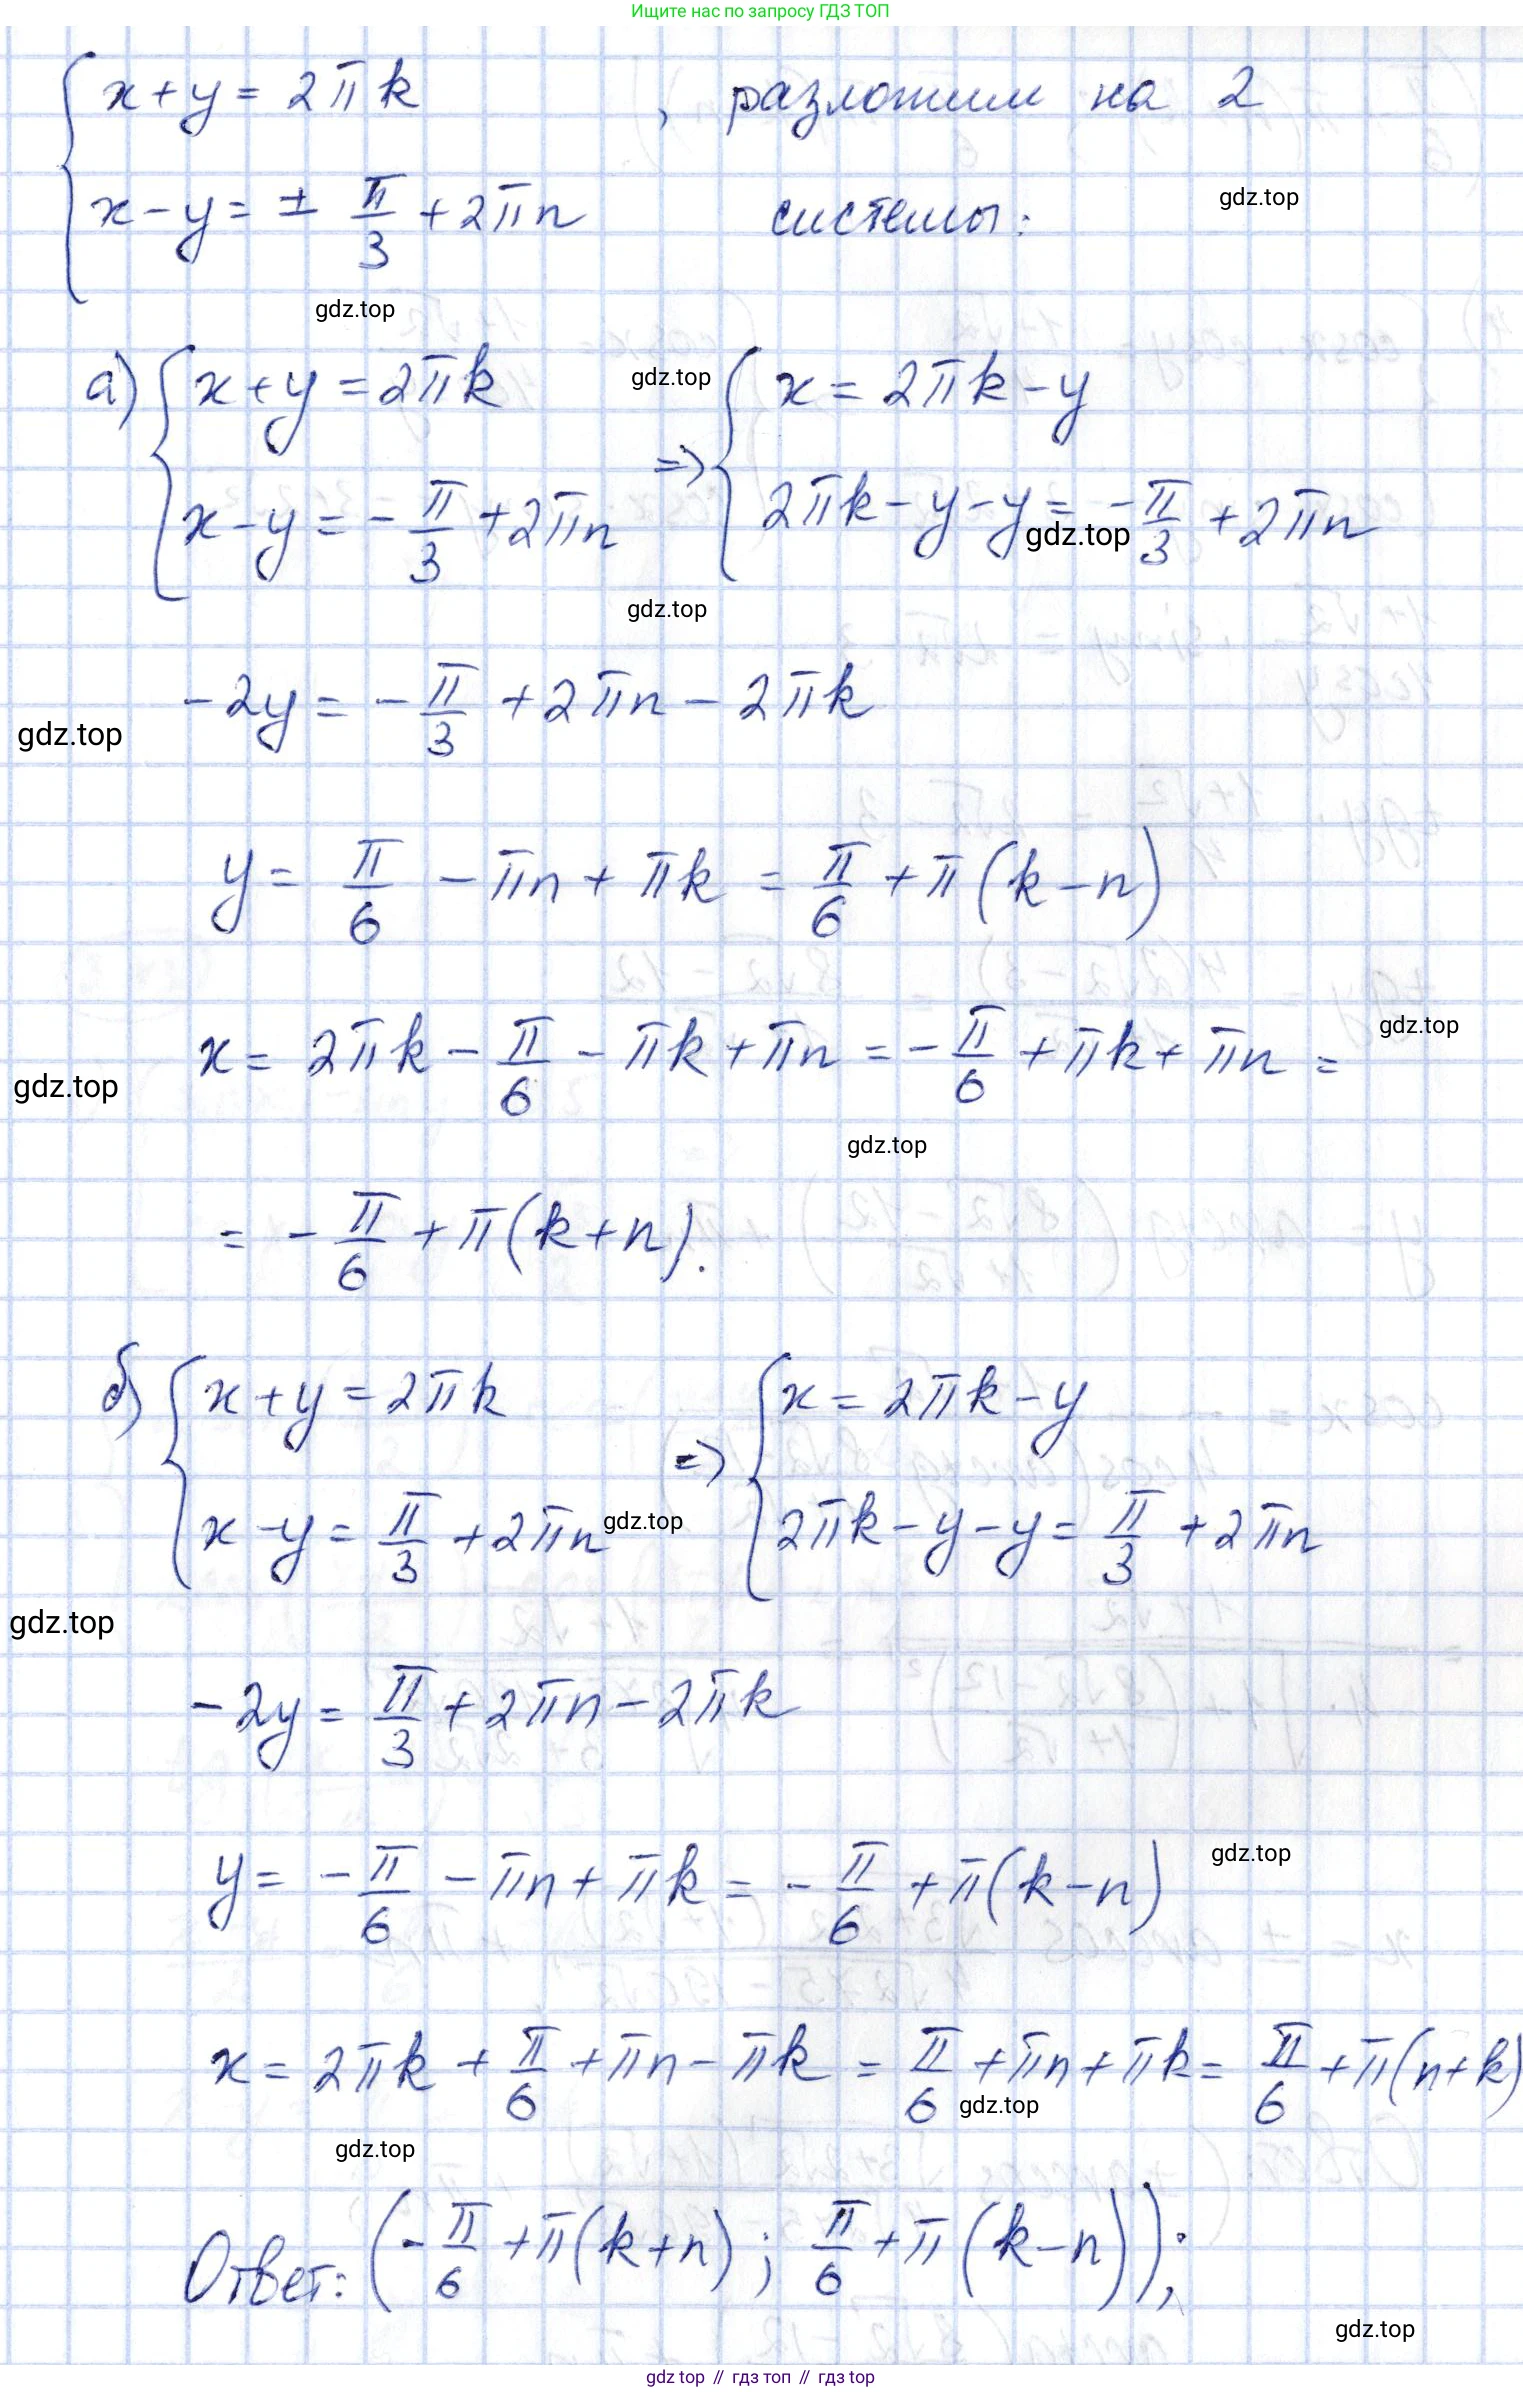 Ищите нас по запросу ГДЗ ТОП
{ x + y = 2πk , разложим на 2
x - y = ± π/3 + 2πn системы:
gdz.top
gdz.top
а) { x + y = 2πk => { x = 2πk - y
gdz.top
x - y = - π/3 + 2πn 2πk - y - y = - π/3 + 2πn
gdz.top
gdz.top
-2y = - π/3 + 2πn - 2πk
gdz.top
y = π/6 - πn + πk = π/6 + π(k - n)
x = 2πk - π/6 - πk + πn = - π/6 + πk + πn =
gdz.top
gdz.top
gdz.top
= - π/6 + π(k + n).
б) { x + y = 2πk => { x = 2πk - y
x - y = π/3 + 2πn 2πk - y - y = π/3 + 2πn
gdz.top
gdz.top
-2y = π/3 + 2πn - 2πk
y = - π/6 - πn + πk = - π/6 + π(k - n)
gdz.top
x = 2πk + π/6 + πn - πk = π/6 + πn + πk = π/6 + π(n + k)
gdz.top
gdz.top
Ответ: (- π/6 + π(k + n); π/6 + π(k - n));
gdz.top
gdz top // гдз топ // гдз top